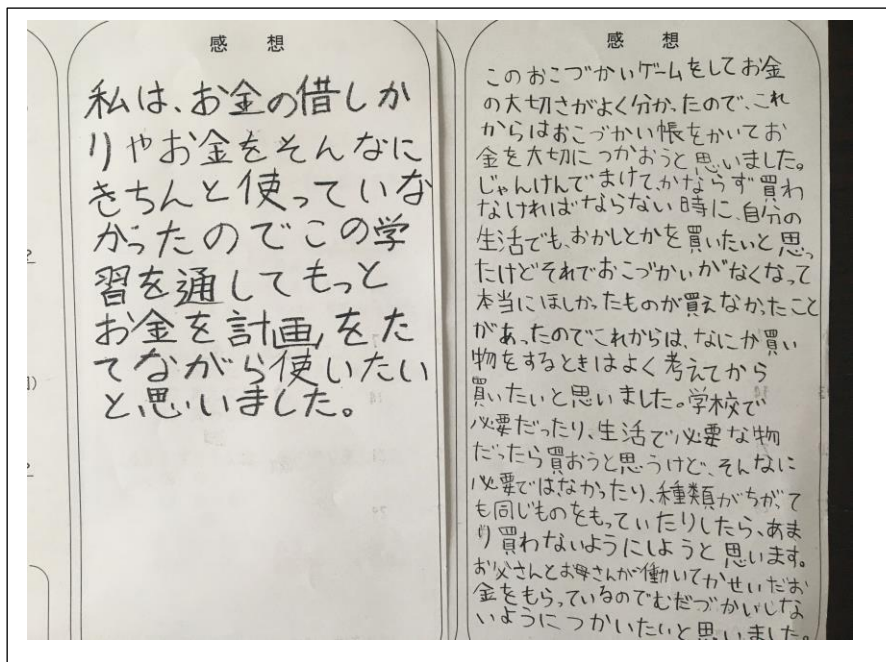 感 想
私は、お金の借しか
りやお金をそんなに
きちんと使っていな
かったのでこの学
習を通してもっと
お金を計画をた
てながら使いたい
と思いました。
感 想
このおこづかいゲームをしてお金
の大切さがよく分かったので、これ
からはおこづかい帳をかいてお
金を大切につかおうと思いました。
じゃんけんでまけて、かならず買わ
なければならない時に、自分の
生活でも、おかしとかを買いたいと思っ
たけどそれでおこづかいがなくなって
本当にほしかったものが買えなかったこと
があったのでこれからは、なにか買い
物をするときはよく考えてから
買いたいと思いました。学校で
必要だったり、生活で必要な物
だったら買おうと思うけど、そんなに
必要ではなかったり、種類がちがって
も同じものをもっていたりしたら、あま
り買わないようにしようと思います。
お父さんとお母さんが働いてかせいだお
金をもらっているのでむだづかいしな
いようにつかいたいと思いました。